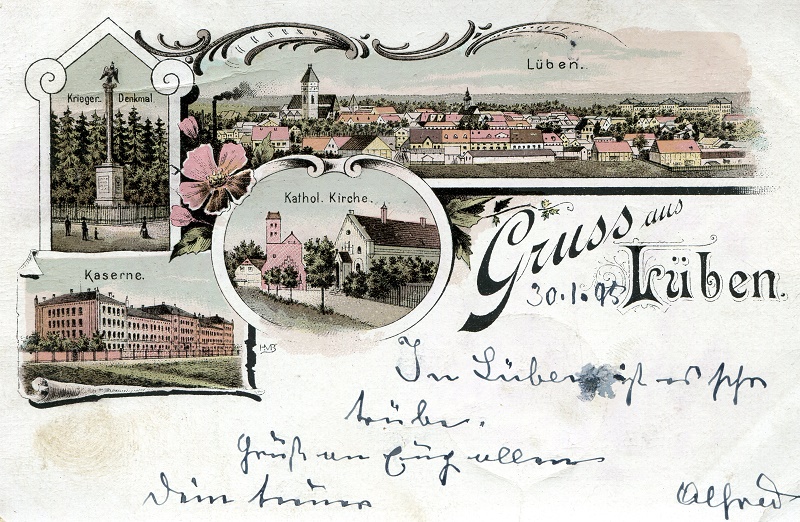 Krieger Denkmal
Lüben.
Kathol. Kirche.
Kaserne.
Gruss aus
Lüben.
30.1.95
HMB
In Lüben ist es sehr
trübe.
Gruß an Euch allen
Dein treuer
Alfred